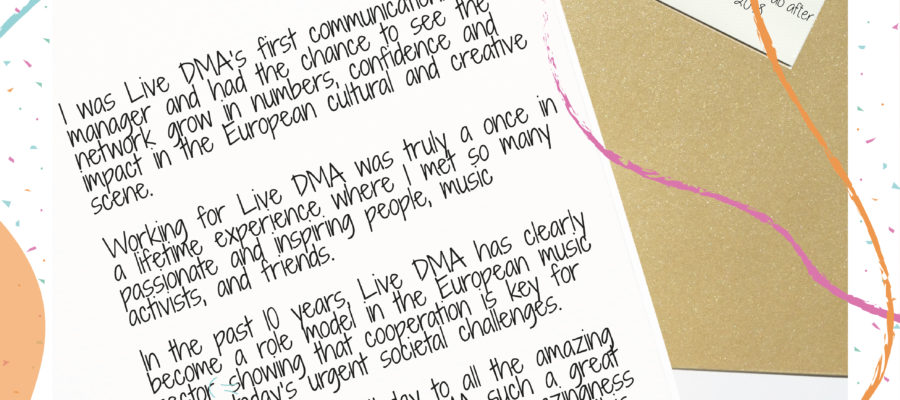 I was Live DMA's first communication
manager and had the chance to see the
network grow in numbers, confidence and
impact in the European cultural and creative
scene.
Working for Live DMA was truly a once in
a lifetime experience where I met so many
passionate and inspiring people, music
activists, and friends.
In the past 10 years, Live DMA has clearly
become a role model in the European music
sector showing that cooperation is key for
today's urgent societal challenges.
day to all the amazing
such a great
after